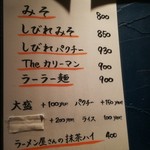 みそ 800
しびれみそ 850
しびれパクチー 930
Theカリーマン 900
ラーラー麺 900
大盛 +100yen パクチー +150yen
+200yen ライス 100yen
ラーメン屋さんの抹茶ハイ 400